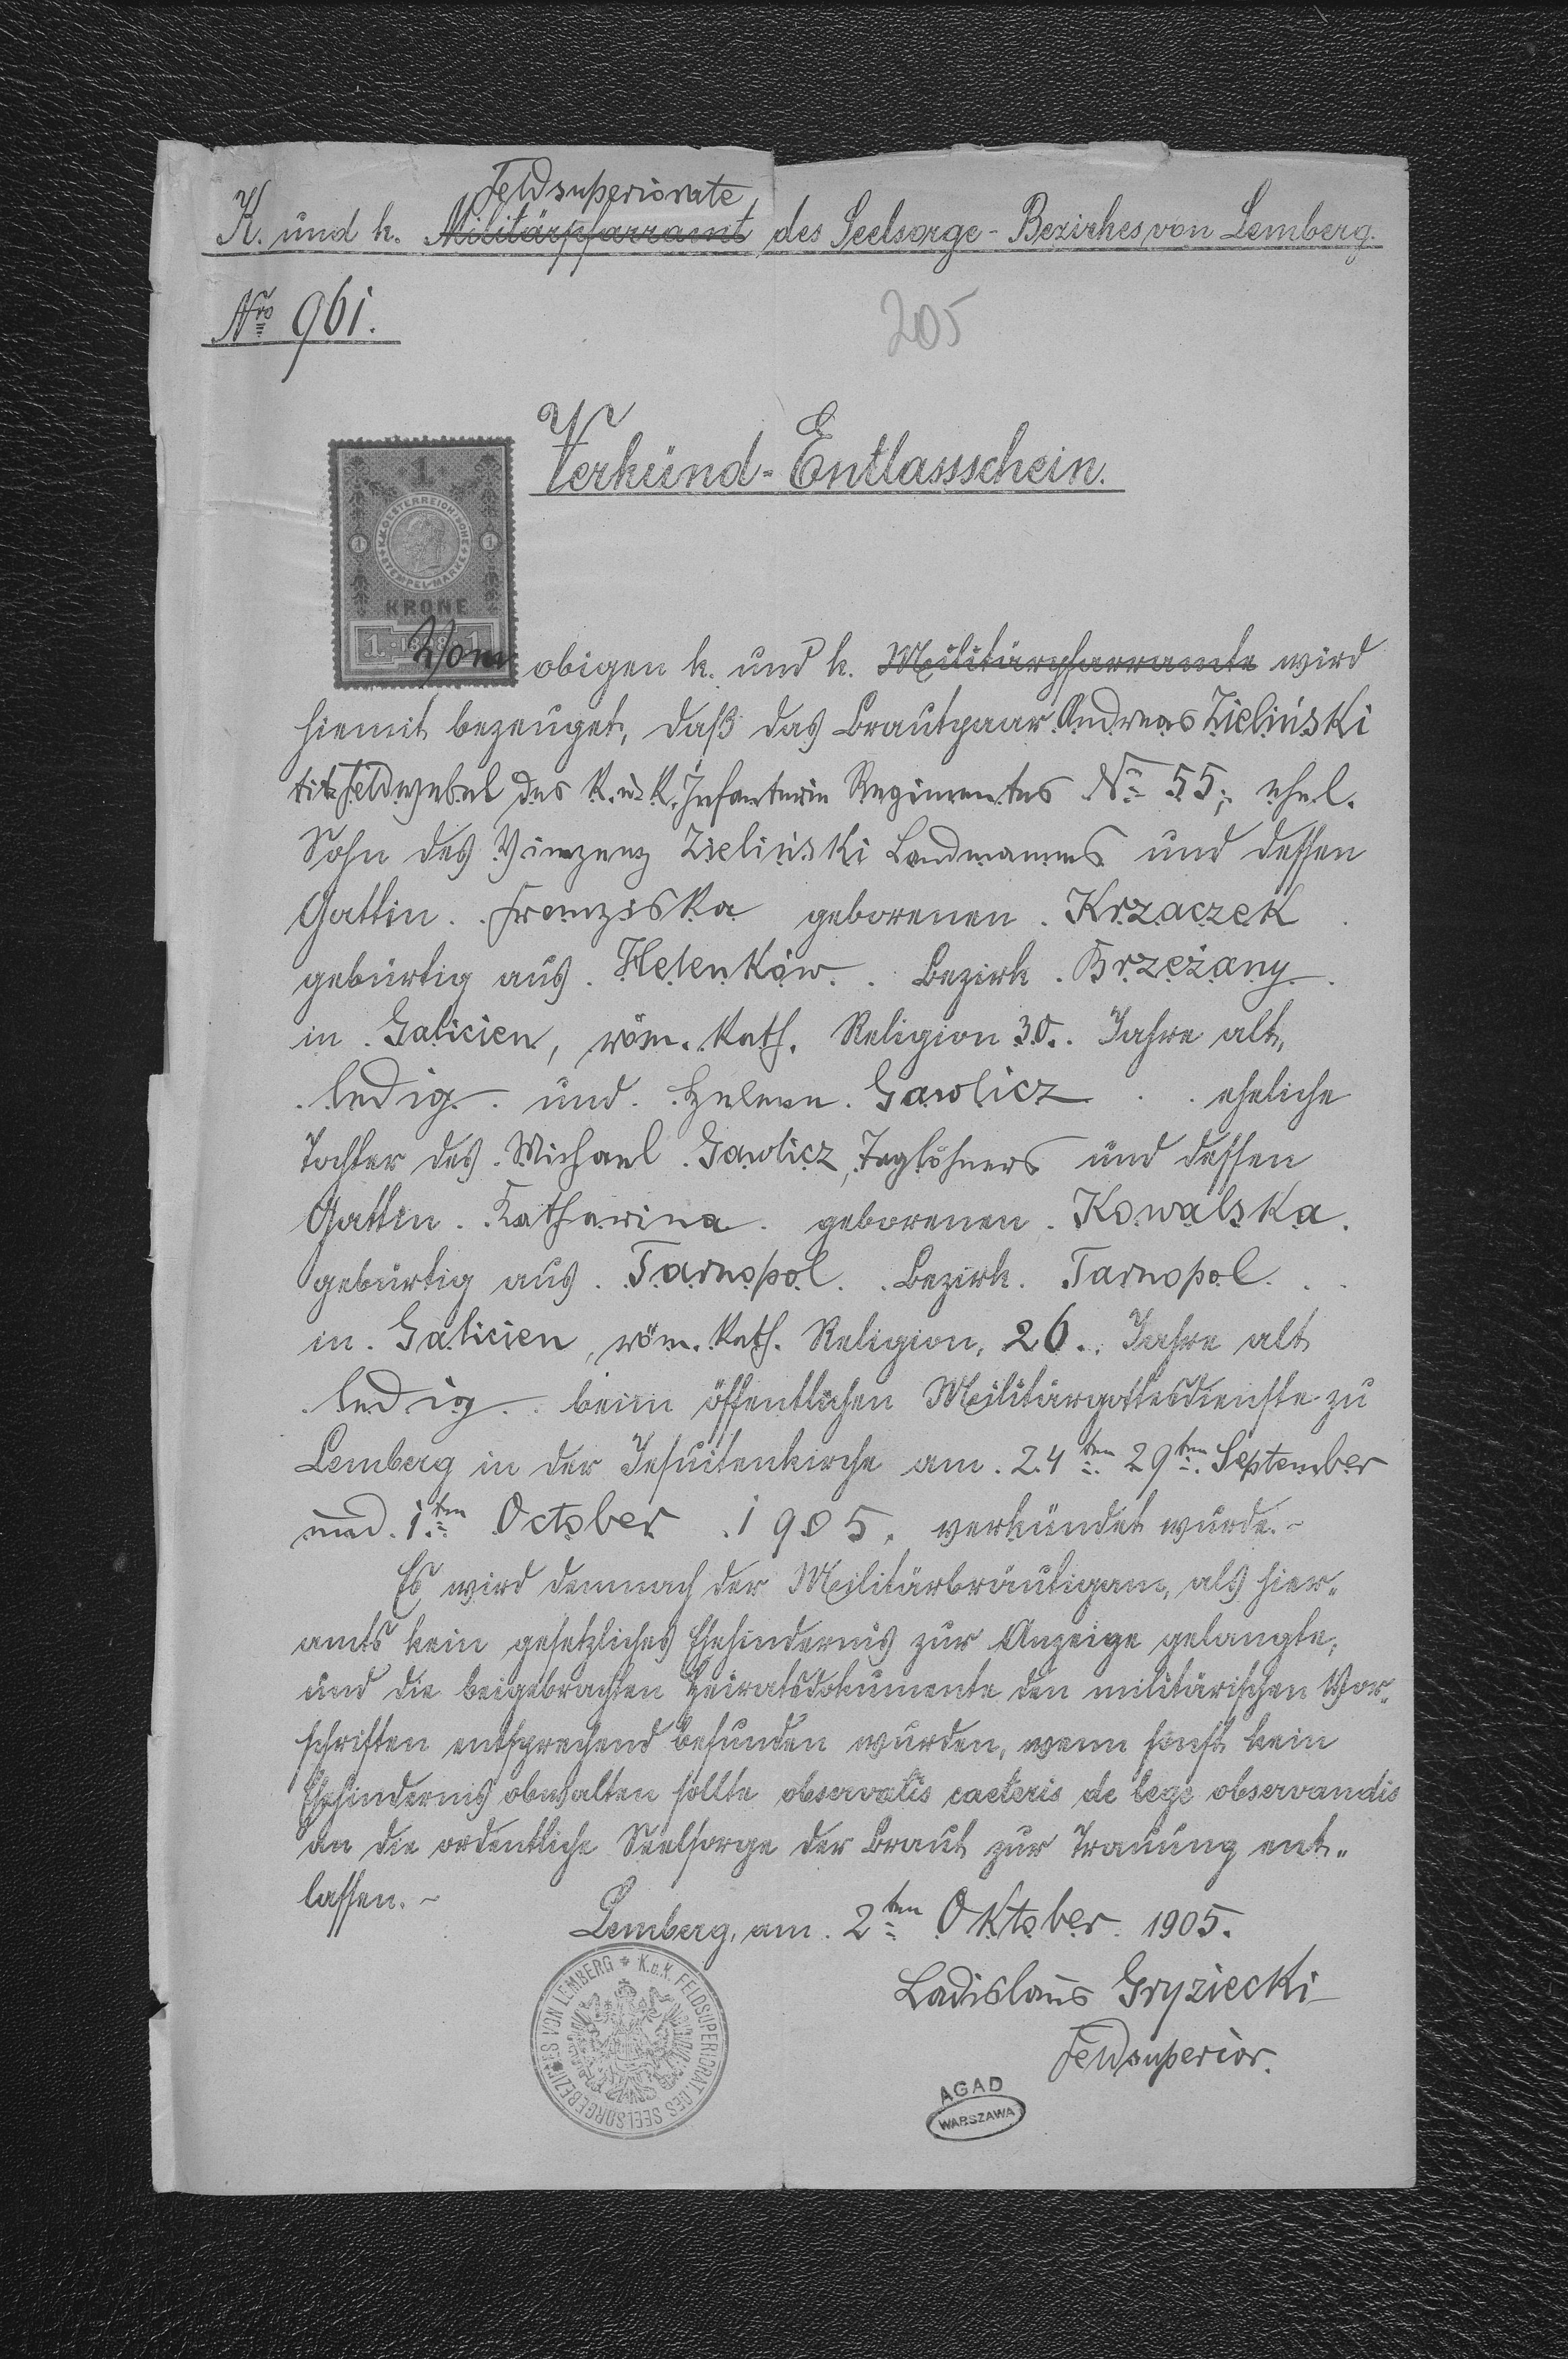 Feldsuperiorate
K. und k. Militärpfarramt des Seelsorge-Bezirkes von Lemberg.
Nro 961.
205
Verkünd-Entlassschein.
1
K.K. ÖSTERREICHISCHE STEMPEL-MARKE
1 1
KRONE
1 1898 1
Vom obigen k. und k. Militärpfarramte wird
hiemit bezeuget, daß das Brautpaar Andreas Zieliński
tit. Feldwebel des k. u. k. Infanterie Regimentes No 55; ehel.
Sohn des Vinzenz Zieliński Landmanns und dessen
Gattin Franziska geborenen Krzaczek
gebürtig aus Helenków Bezirk Brzeżany
in Galicien, röm. kath. Religion 30 Jahre alt,
ledig und Helena Gawlicz eheliche
Tochter des Michael Gawlicz, Taglöhners und dessen
Gattin Katharina geborenen Kowalska
gebürtig aus Tarnopol Bezirk Tarnopol
in Galicien, röm. kath. Religion, 26 Jahre alt
ledig beim öffentlichen Militärgottesdienste zu
Lemberg in der Jesuitenkirche am 24ten 29ten September
und 1ten October 1905. verkündet wurde.~
Es wird demnach der Militärbräutigam, als hier-
amts kein gesetzliches Ehehinderniß zur Anzeige gelangte,
und die beigebrachten Heiratsdokumente den militärischen Vor-
schriften entsprechend befunden wurden, wenn sonst kein
Ehehinderniß obwalten sollte observatis caeteris de lege observandis
an die ordentliche Seelsorge der Braut zur Trauung ent-
lassen.~
Lemberg, am 2ten Oktober 1905.
Ladislaus Gryziecki
Feldsuperior.
K.u.K. FELDSUPERIORAT DES SEELSORGEBEZIRKES VON LEMBERG *
AGAD
WARSZAWA